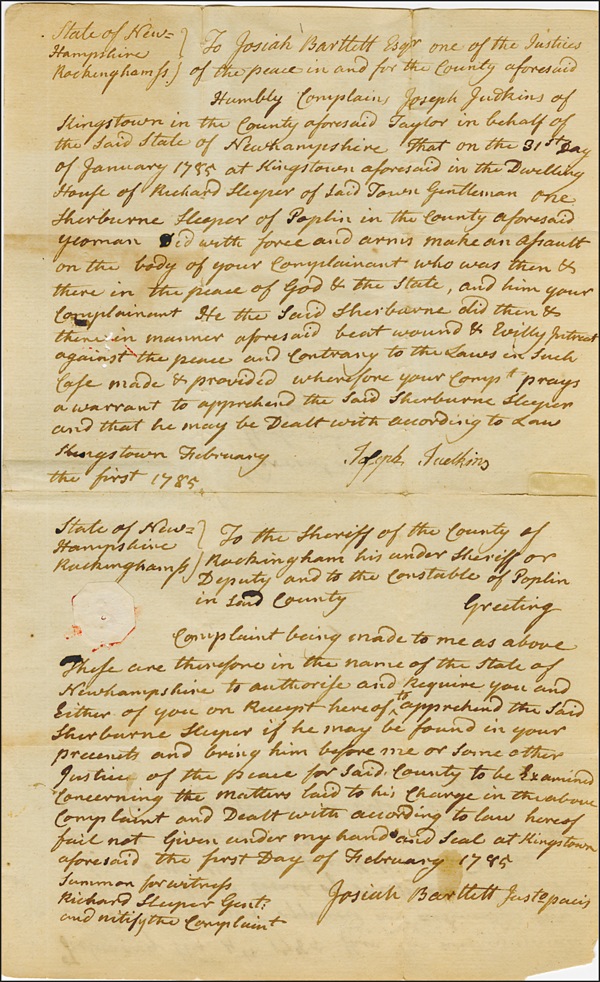 State of New=
Hampshire
Rockingham ss.
To Josiah Bartlett Esqr. one of the Justices
of the peace in and for the County aforesaid
Humbly Complains Joseph Judkins of
Kingstown in the County aforesaid Taylor in behalf of
the Said State of Newhampshire That on the 31st Day
of January 1785 at Kingstown aforesaid in the Dwelling
House of Richard Sleeper of Said Town Gentleman one
Sherburne Sleeper of Poplin in the County aforesaid
yeoman Did with force and arms make an Assault
on the body of your Complainant who was then &
there in the peace of God & the State, and him your
Complainant He the Said Sherburne did then &
there in manner aforesaid beat wound & Evilly Intreat
against the peace and Contrary to the Laws in Such
Case made & provided wherefore your Compt prays
a warrant to apprehend the Said Sherburne Sleeper
and that he may be Dealt with according to Law
Kingstown February
the first 1785.
Joseph Judkins
State of New=
Hampshire
Rockingham ss
To the Sheriff of the County of
Rockingham his under Sheriff or
Deputy and to the Constable of Poplin
in Said County Greeting
Complaint being made to me as above
These are therefore in the name of the State of
Newhampshire to authorise and Require you and
Either of you on Receipt hereof to apprehend the Said
Sherburne Sleeper if he may be found in your
precincts and bring him before me or Some other
Justice of the peace for Said County to be Examined
Concerning the Matters laid to his Charge in the above
Complaint and Dealt with according to law hereof
fail not Given under my hand and Seal at Kingstown
aforesaid the first Day of February 1785
Summon for witness
Richard Sleeper Gent.
and notify the Complaint
Josiah Bartlett Just o pacis